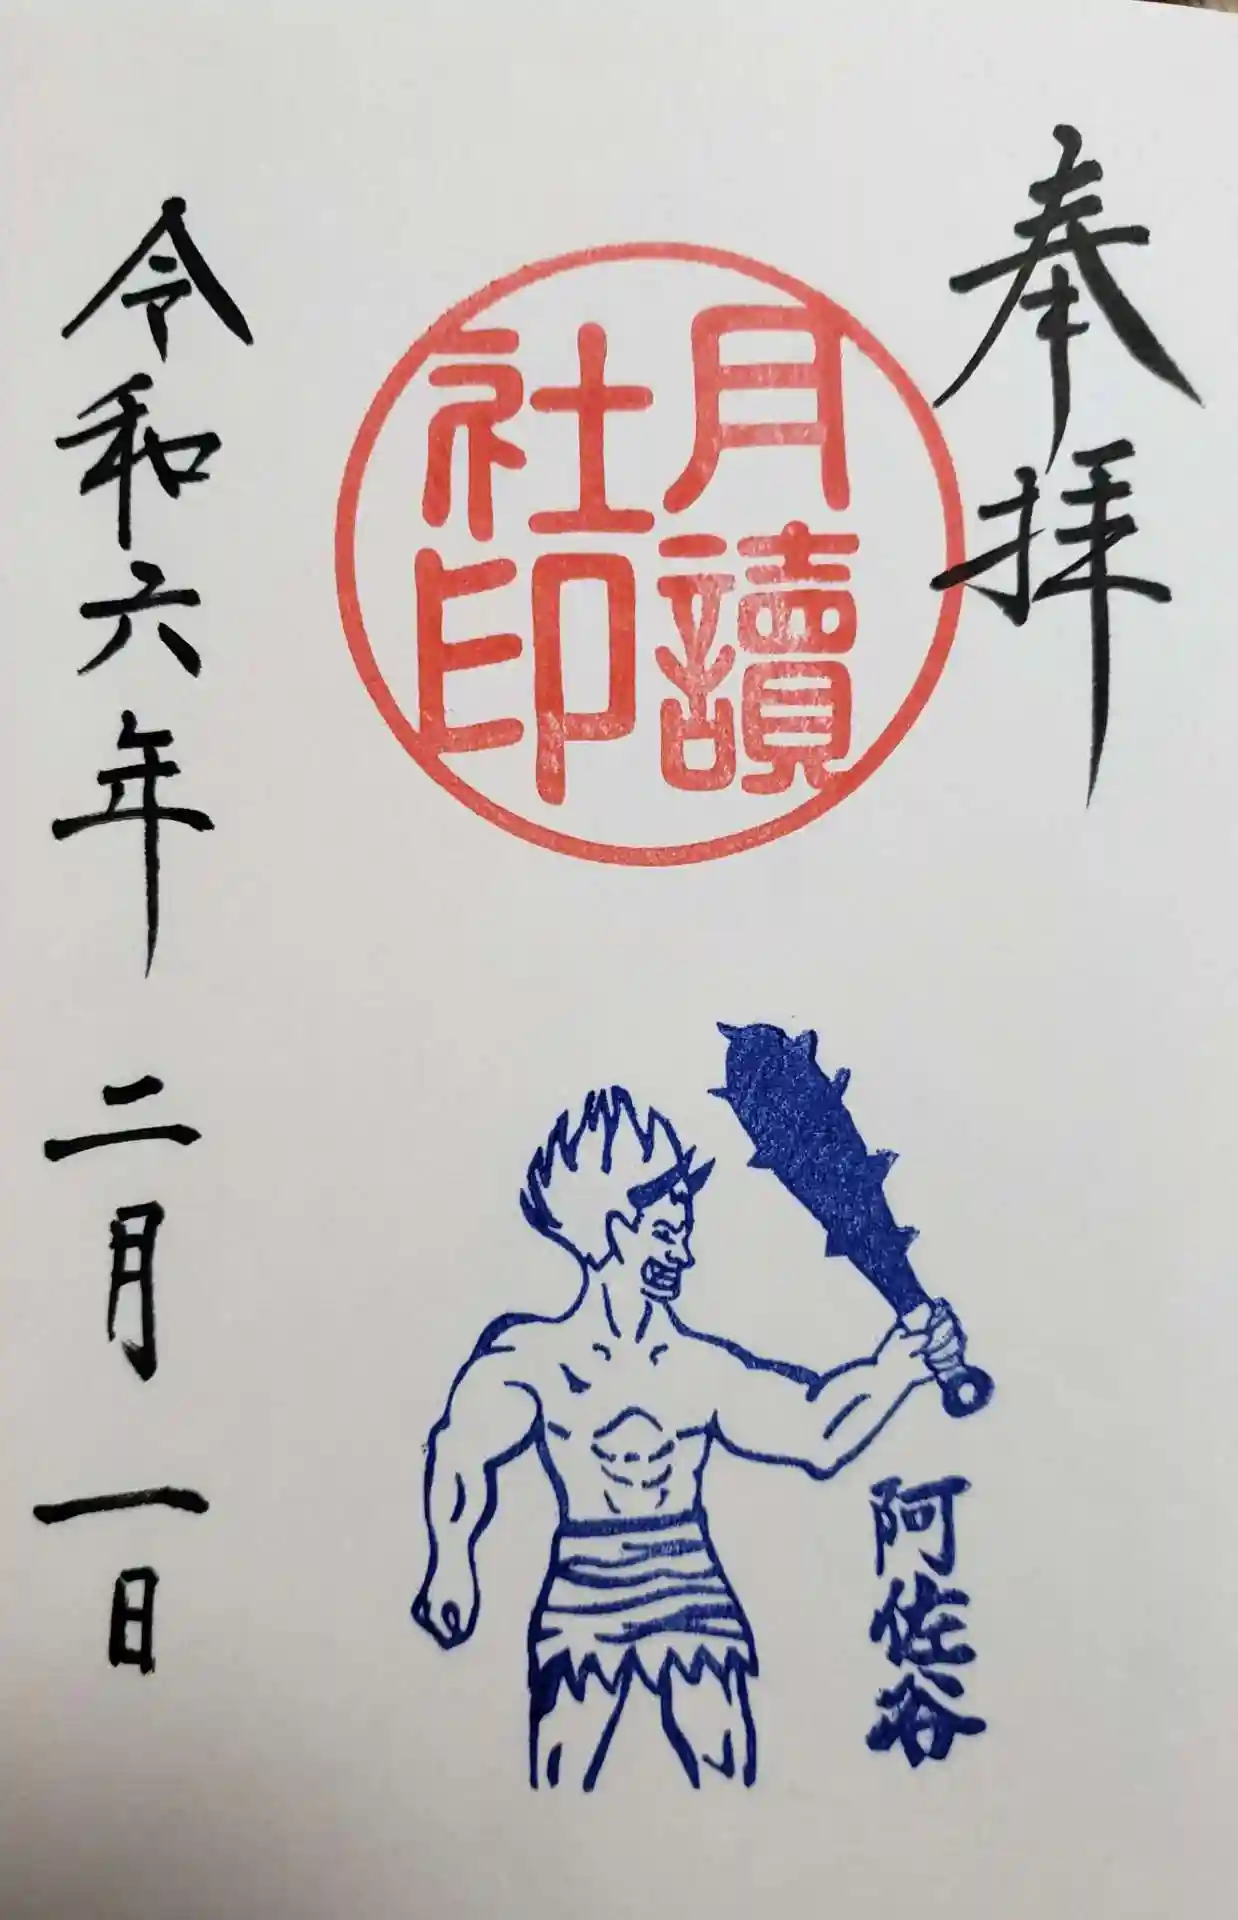 奉拝
月讀
社印
阿佐谷
令和六年二月一日